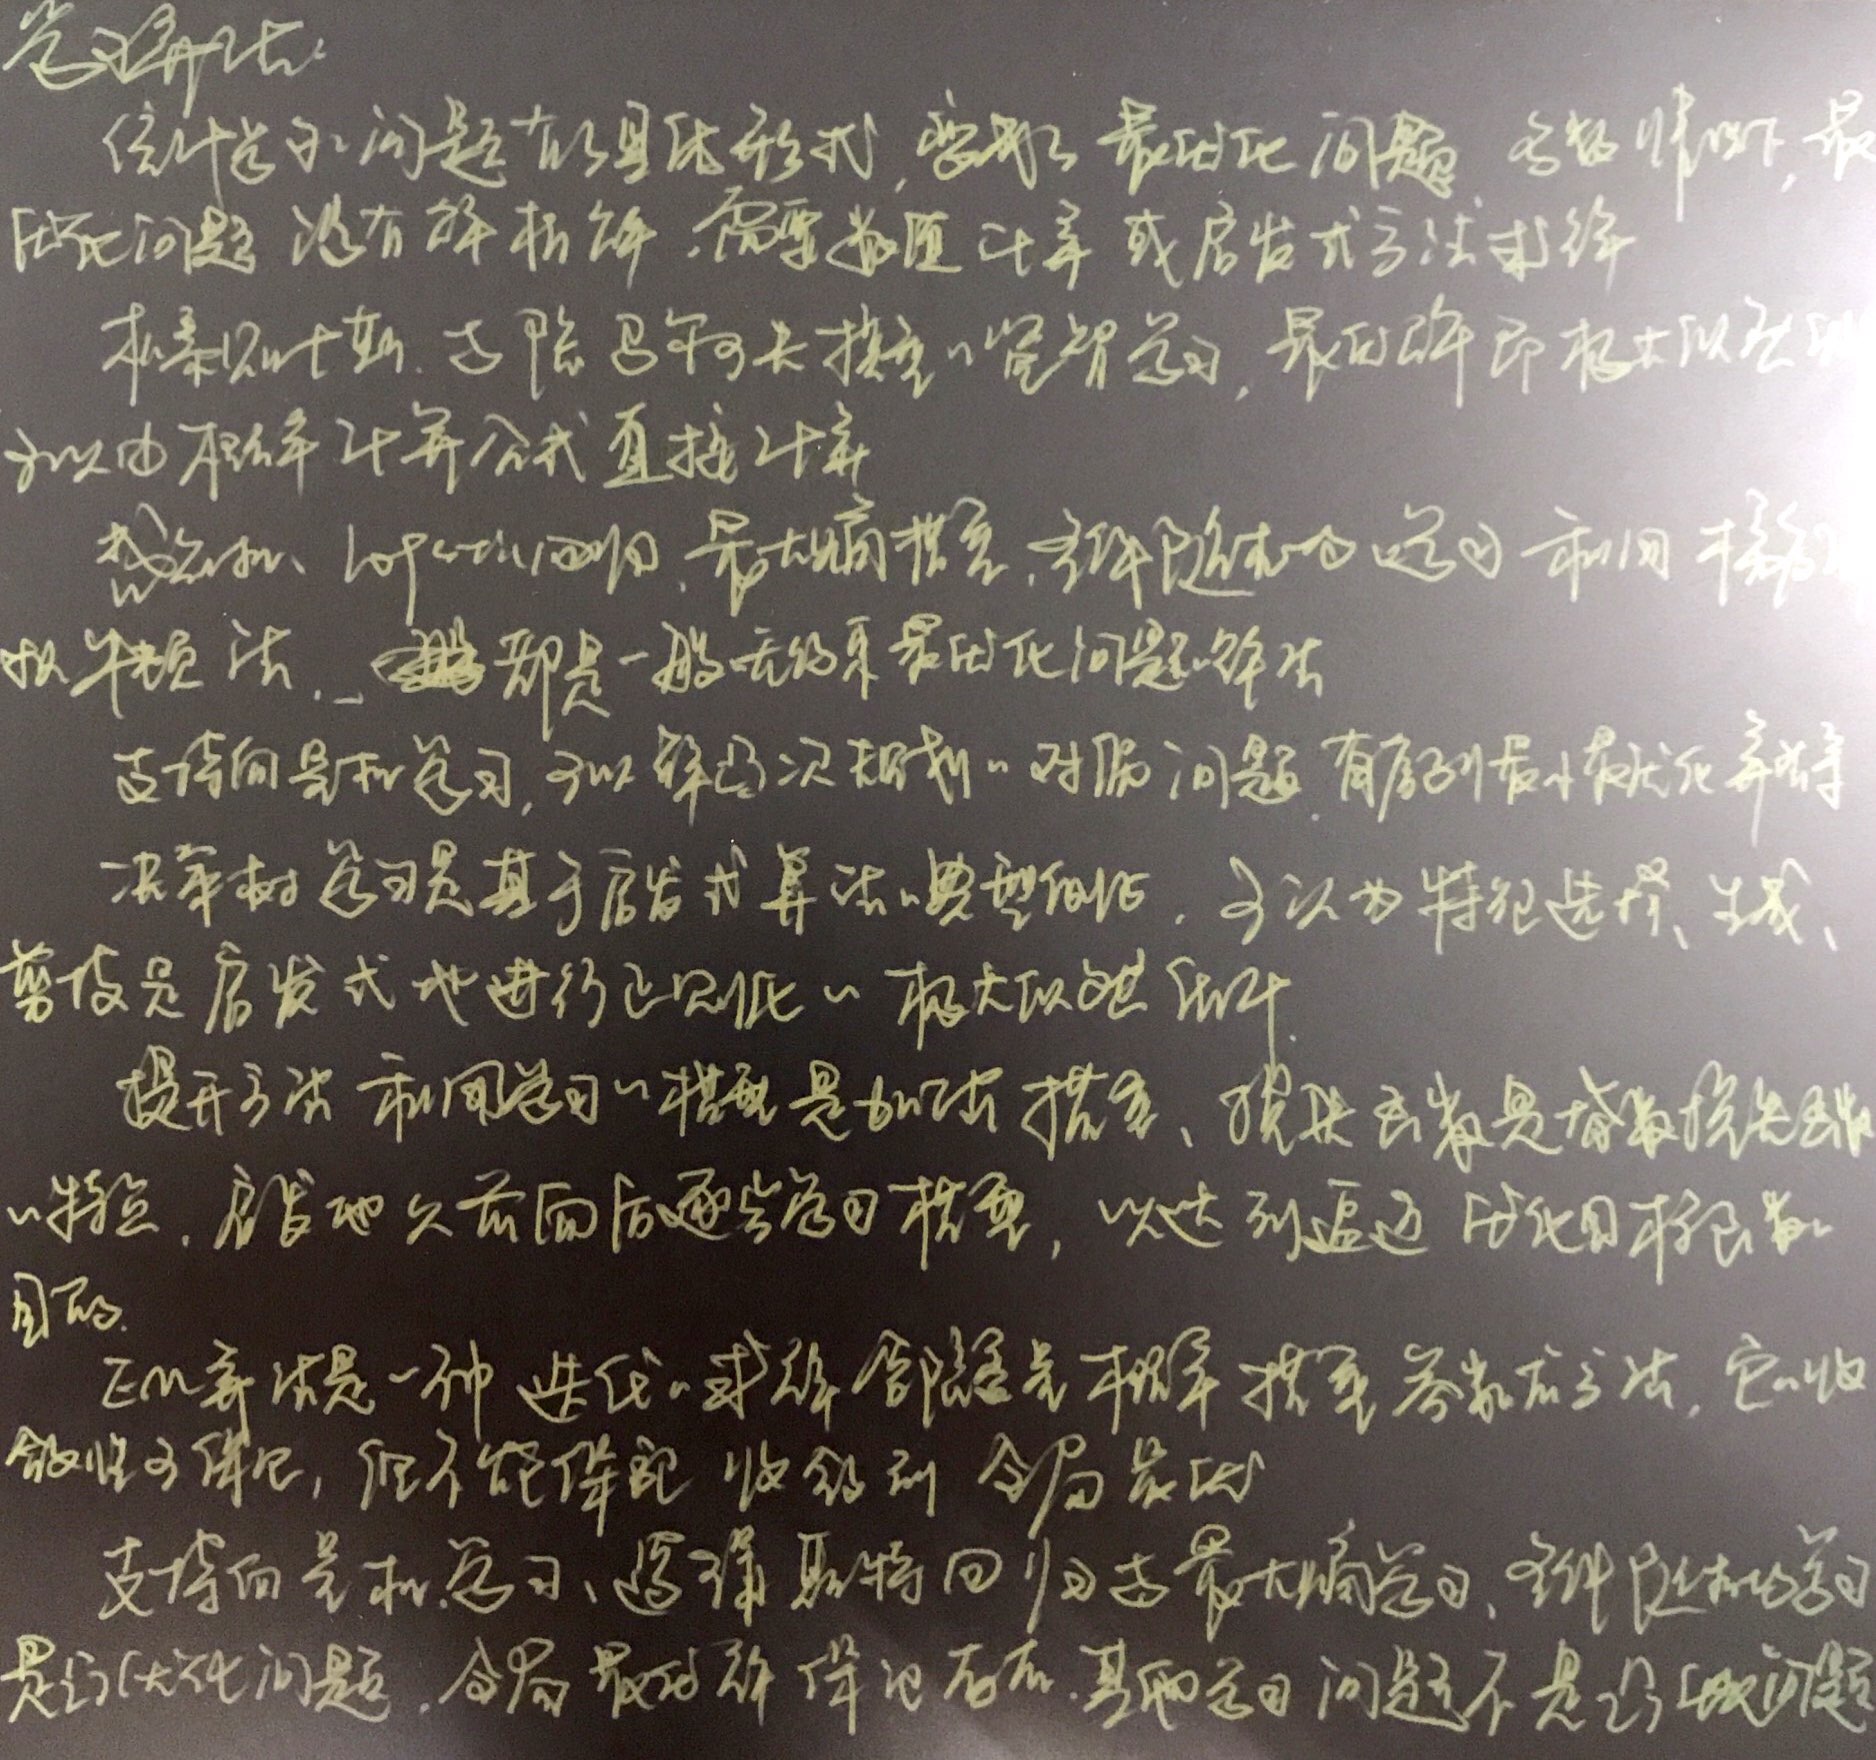 学习算法
统计学习问题有了具体形式,变成了最优化问题,多数情况下,最
优化问题没有解析解,需要数值计算或启发式方法求解
朴素贝叶斯、与隐马尔可夫模型的监督学习,最优解即极大似然
可以由概率计算公式直接计算
感知机、logistic回归、最大熵模型、条件随机场 学习利用梯度
拟牛顿法、 都是一般无约束最优化问题的解法
支持向量机学习,可以解凸二次规划的对偶问题,有序列最小最优化算法等
决策树学习是基于启发式算法的典型例子,可以认为特征选择、生成、
剪枝是启发式地进行正则化的极大似然估计.
提升方法利用学习的模型是加法模型、损失函数是指数损失函数
的特点,启发地从前向后逐步学习模型,以达到逼近优化目标函数的
目的.
EM算法是一种迭代的求解含隐变量概率模型参数的方法,它的收
敛性可保证,但不能保证收敛到全局最优
支持向量机学习、逻辑斯特回归与最大熵学习、条件随机场学习
是凸优化问题,全局最优解保证存在.其他学习问题不是凸优化问题